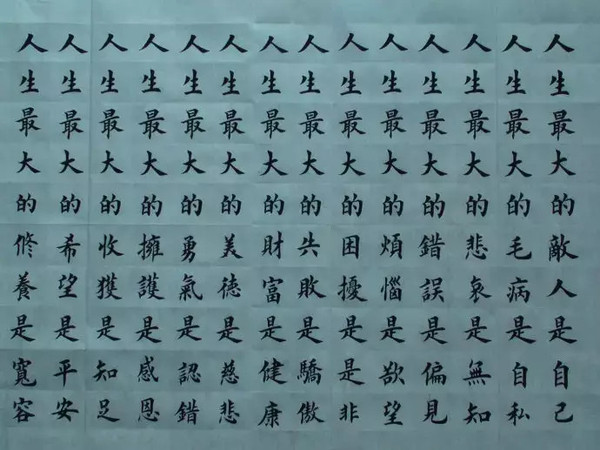 人生最大的敵人是自己
人生最大的毛病是自私
人生最大的悲哀是無知
人生最大的錯誤是偏見
人生最大的煩惱是欲望
人生最大的困擾是是非
人生最大的失敗是驕傲
人生最大的財富是健康
人生最大的美德是慈悲
人生最大的勇氣是認錯
人生最大的擁護是感恩
人生最大的收獲是知足
人生最大的希望是平安
人生最大的修養是寬容